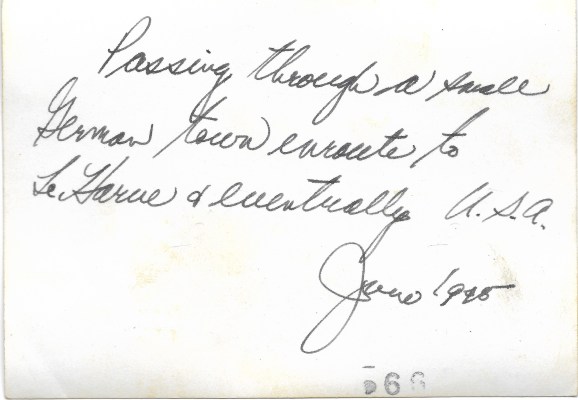 Passing through a small
German town enroute to
Le Harve & eventually U.S.A.
June 1945
566